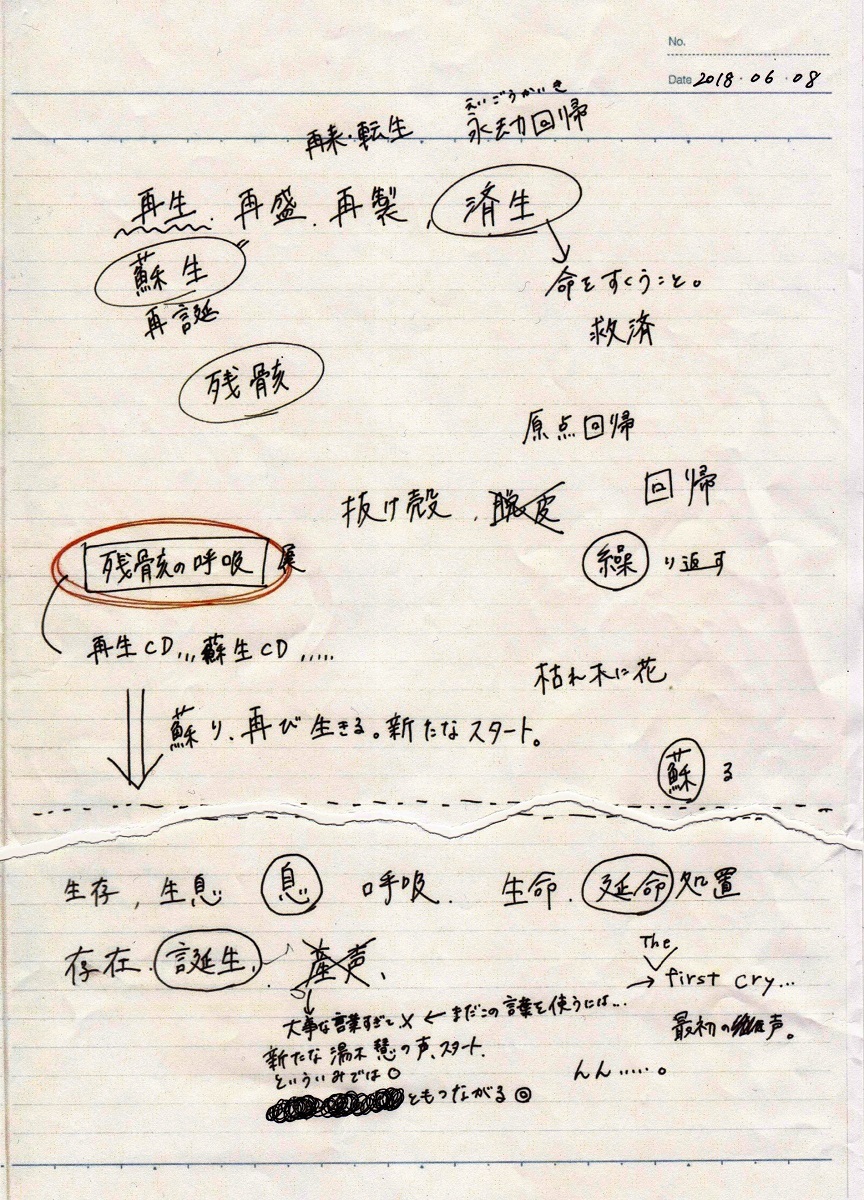 No.
Date 2018.06.08
えいごうかいき
再来・転生 永劫回帰
再生、再盛、再製、済生
蘇生
命をすくうこと。
再誕
救済
残骸
原点回帰
回帰
抜け殻、脱皮
残骸の呼吸展
繰り返す
再生CD,,, 蘇生CD .....
枯れ木に花
蘇り、再び生きる。新たなスタート。
蘇る
生存, 生息 息 呼吸. 生命. 延命処置
存在. 誕生. 産声、
The
→ first cry...
大事な言葉すぎて × ← まだこの言葉を使うには...
最初の声。
新たな湯木慧の声、スタート.
といういみでは○
んん.....。
ともつながる◎